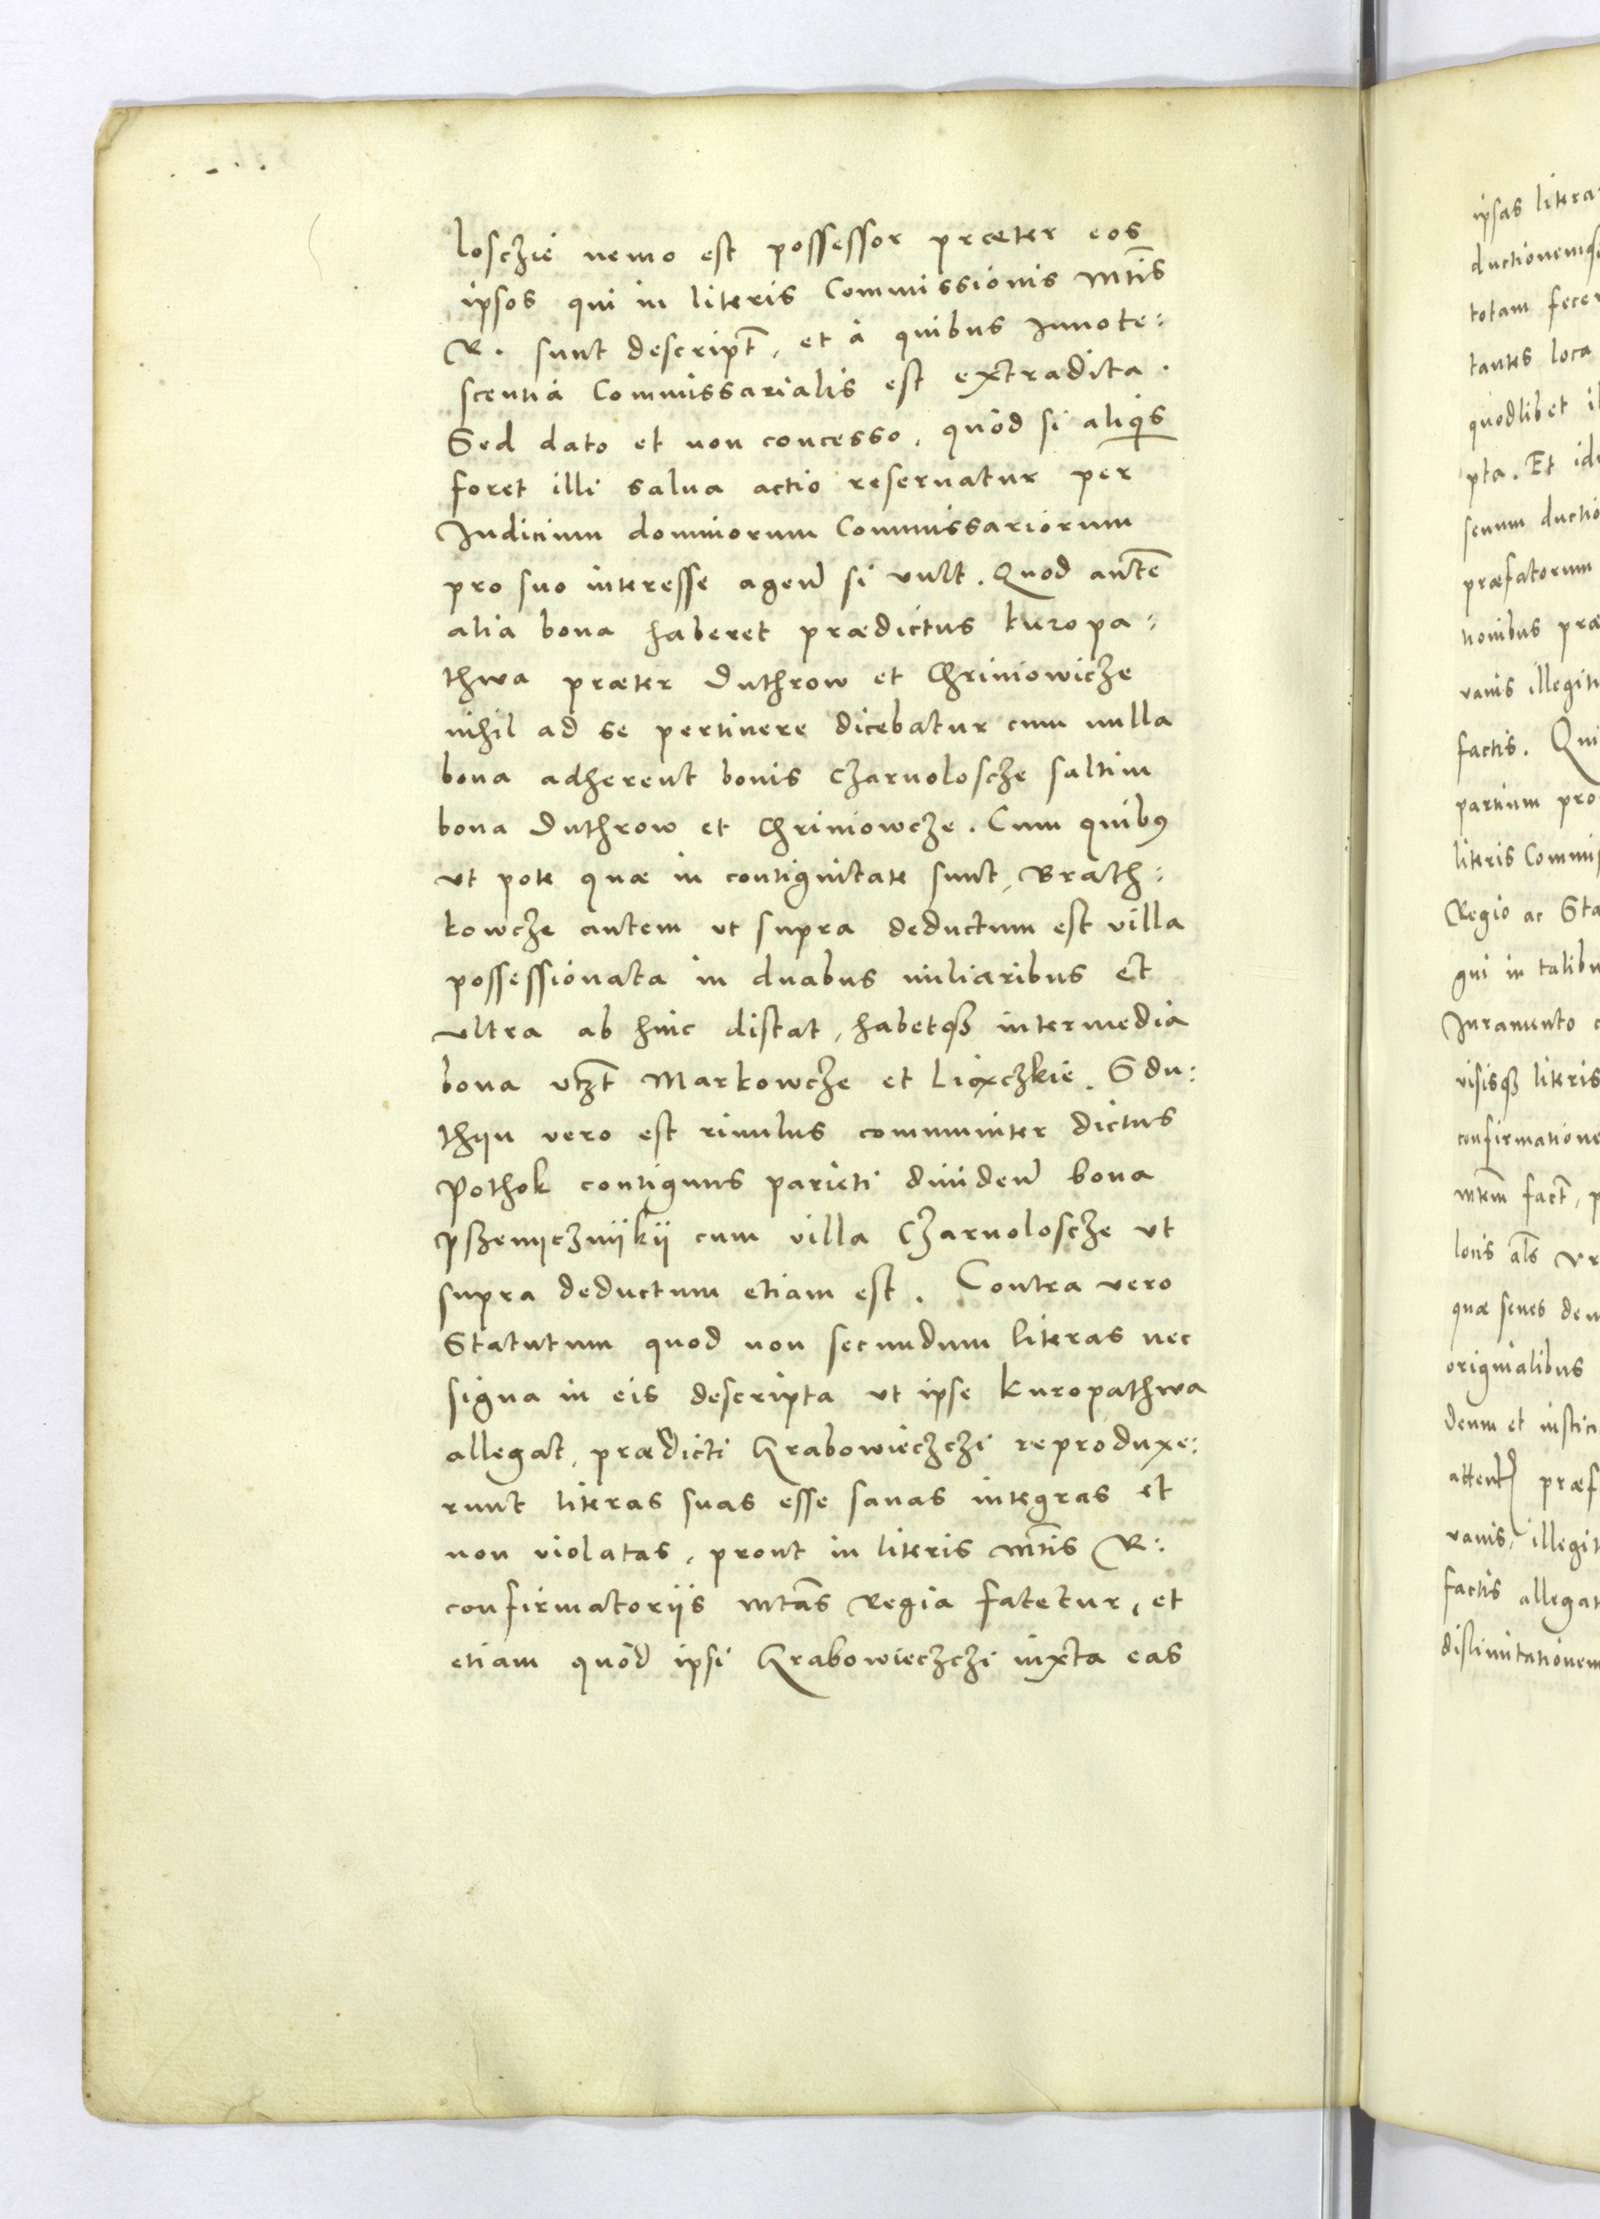 losczie nemo est possessor præter eos
ipsos qui in literis Commissionis Mtis
R. sunt descript, et à quibus Innote:
scentia Commissarialis est extradita.
Sed dato et non concesso, quòd si aliqis
foret illi salua actio reseruatur per
Judicium dominorum Commissariorum
pro suo interesse agen si vult. Quod autē
alia bona haberet prædictus Kuropa:
thwa præter Duthrow et Chriniowicze
nihil ad se pertinere dicebatur cum nulla
bona adherent bonis Czarnolosche saltim
bona Duthrow et Chriniowcze. Cum quibus
vt pote quæ in contiguitate sunt, Brath:
kowcze autem vt supra deductum est villa
possessionata in duabus miliaribus et
vltra ab hinc distat, habetque intermedia
bona vtzt Markowcze et Lioxczkie. Sdu:
thyn vero est riuulus communiter dictus
Pothok contiguus parieti diuiden bona
Pszenyczniikii cum villa Czarnolosche vt
supra deductum etiam est. Contra vero
Statutum quod non secundum literas nec
signa in eis descripta vt ipse Kuropathwa
allegat, prædicti Hrabowieczczi reproduxe:
runt literas suas esse sanas integras et
non violatas, prout in literis Mtis R:
confirmatoriis Mtas Regia fatetur, et
etiam quòd ipsi Hrabowieczczi iuxta eas
ipsas litera
totam fecer
tantes loca
quodlibet il
pta. Et id
senum ductio
præfatorum
tionibus præ
vanis illegiti
factis. Qui
partium pro
literis Commis
Regio ac Sta
gni in talibu
Juramento
visisque literis
confirmatione
mtem fact, p
locis als vr
quæ senes den
originalibus
deum et iustici
attent præf
vanis, illegit
factis allegat
dislimitationem